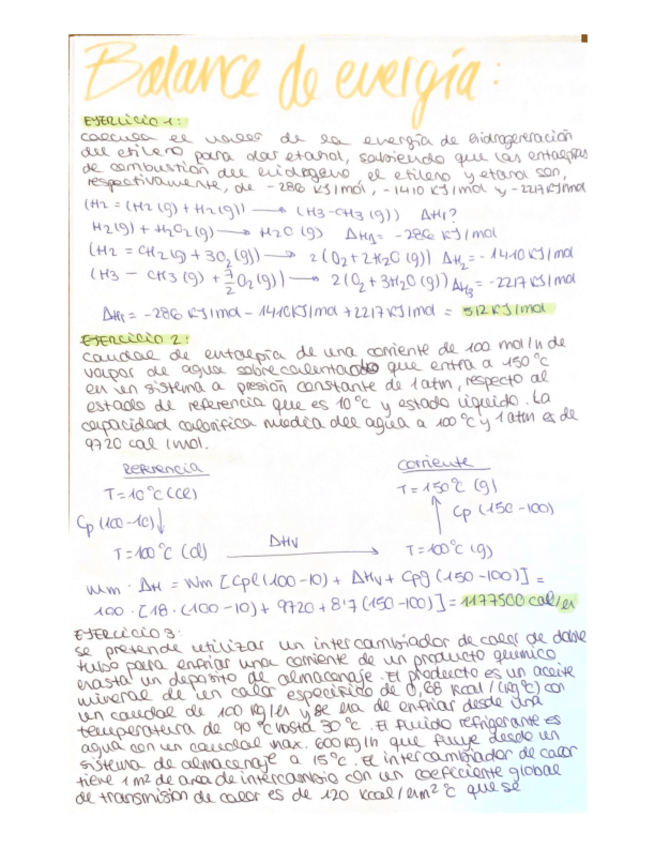 Balance de energía:
EJERCICIO 1:
calcula el valor de la energía de hidrogenación
del etileno para dar etanol, sabiendo que las entalpías
de combustión del hidrógeno, el etileno y etano son,
respectivamente, de -286 KJ/mol, -1410 KJ/mol y -2217 KJ/mol
CH2 = CH2 (g) + H2 (g)) → CH3-CH3 (g)) ΔHr?
H2(g) + H2O2(g) → H2O (g) ΔH1 = -286 KJ/mol
(H2 = CH2 (g) + 3O2 (g)) → 2 (O2 + 2H2O (g)) ΔH2 = -1410 KJ/mol
(H3 - CH3 (g) + 7/2 O2 (g)) → 2 (O2 + 3H2O (g)) ΔH3 = -2217 KJ/mol
ΔHr = -286 KJ/mol - 1410 KJ/mol + 2217 KJ/mol = 512 KJ/mol
EJERCICIO 2:
caudal de entalpía de una corriente de 100 mol/h de
vapor de agua sobrecalentado que entra a 150 °C
en un sistema a presión constante de 1 atm, respecto al
estado de referencia que es 10 °C y estado líquido. La
capacidad calorífica media del agua a 100 °C y 1 atm es de
9720 cal/mol.
Referencia corriente
T = 10 °C (l) T = 150 °C (g)
Cp (100-10) ↓ ↑ Cp (150-100)
T = 100 °C (l) ΔHv → T = 100 °C (g)
Wm · ΔH = Wm [Cpl (100-10) + ΔHv + Cpg (150-100)] =
100 · [18 · (100-10) + 9720 + 8'7 (150-100)] = 1177500 cal/h
EJERCICIO 3:
se pretende utilizar un intercambiador de calor de doble
tubo para enfriar una corriente de un producto químico
hasta un depósito de almacenaje. El producto es un aceite
mineral de un calor específico de 0,68 Kcal/(kg°C) con
un caudal de 100 kg/h y se ha de enfriar desde una
temperatura de 90 °C hasta 30 °C. El fluido refrigerante es
agua con un caudal max. 600 kg/h que fluye desde un
sistema de almacenaje a 15 °C. El intercambiador de calor
tiene 1 m2 de area de intercambio con un coeficiente global
de transmisión de calor es de 120 Kcal/hm2 °C que se